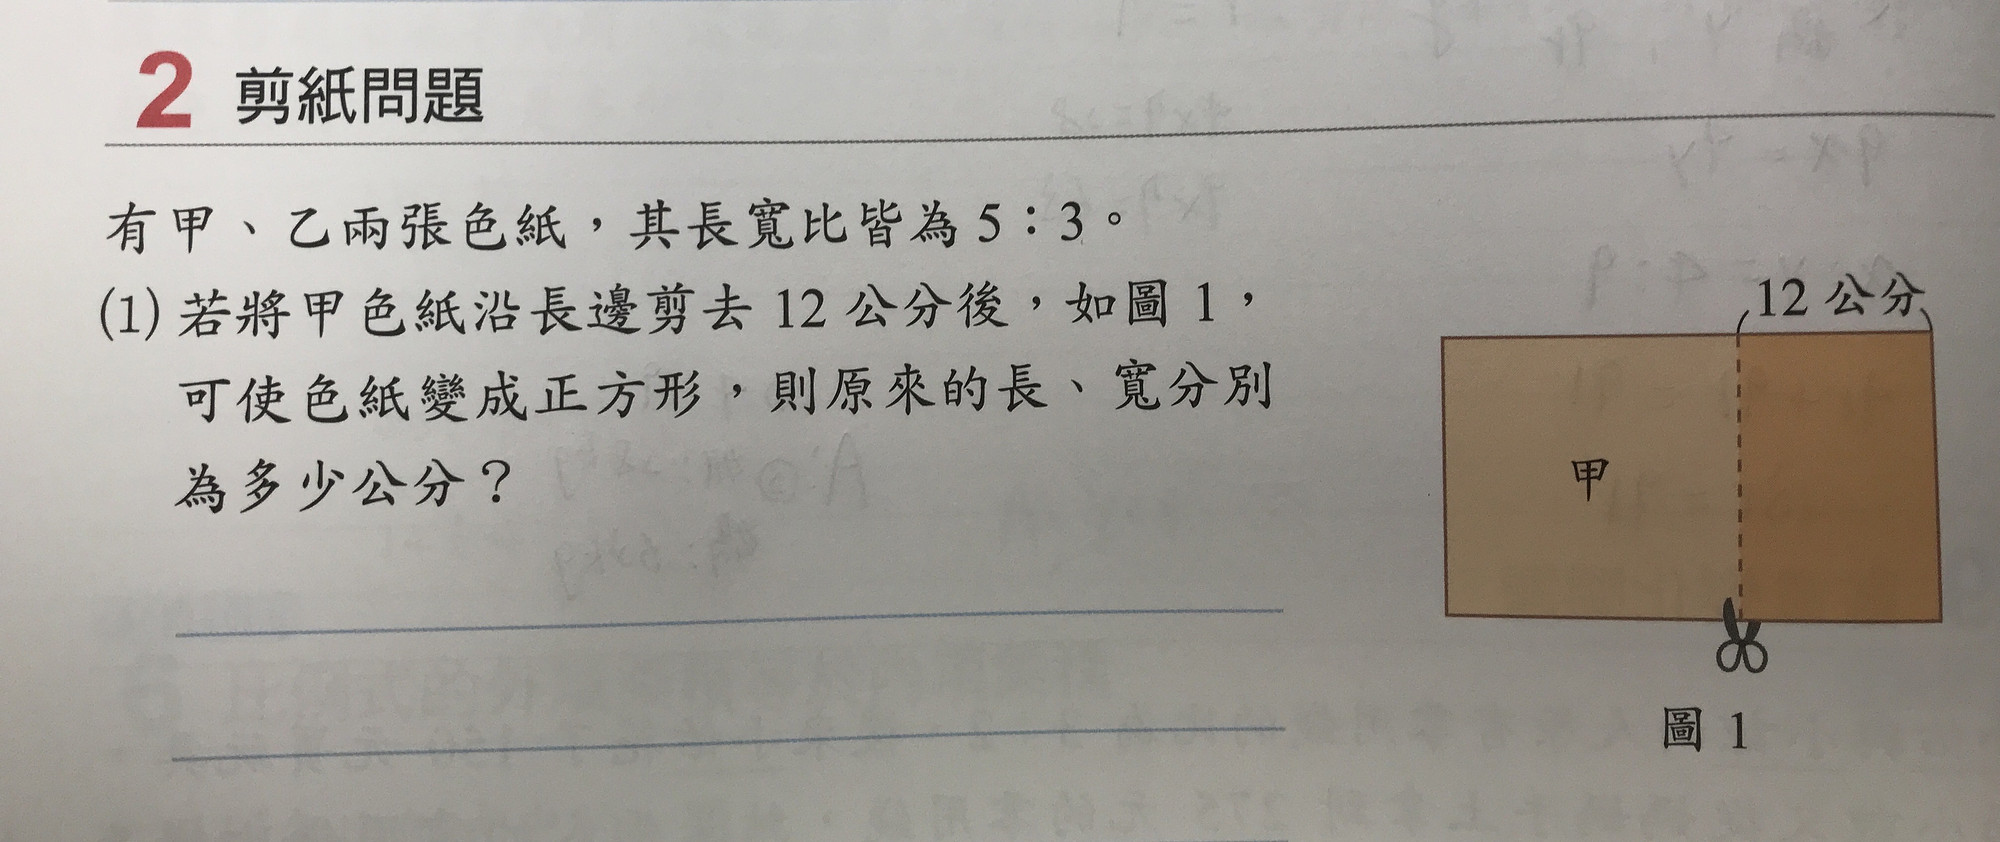 2 剪紙問題
有甲、乙兩張色紙，其長寬比皆為 5：3。
(1) 若將甲色紙沿長邊剪去 12 公分後，如圖 1，
可使色紙變成正方形，則原來的長、寬分別
為多少公分？
12 公分
甲
圖 1